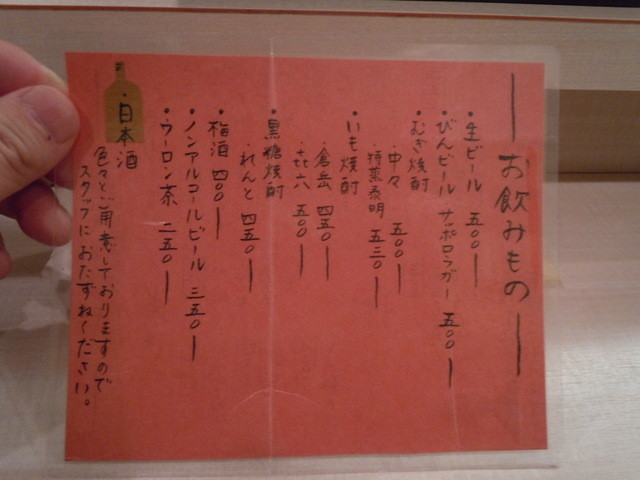 お飲みもの
・生ビール 五〇〇
・びんビール サッポロラガー 五〇〇
・むぎ焼酎
・中々 五〇〇
・特蒸泰明 五三〇
・いも焼酎
・倉岳 四五〇
・㐂六 五〇〇
・黒糖焼酎
・れんと 四五〇
・梅酒 四〇〇
・ノンアルコールビール 三五〇
・ウーロン茶 二五〇
・日本酒
色々とご用意しておりますので
スタッフにおたずねください。